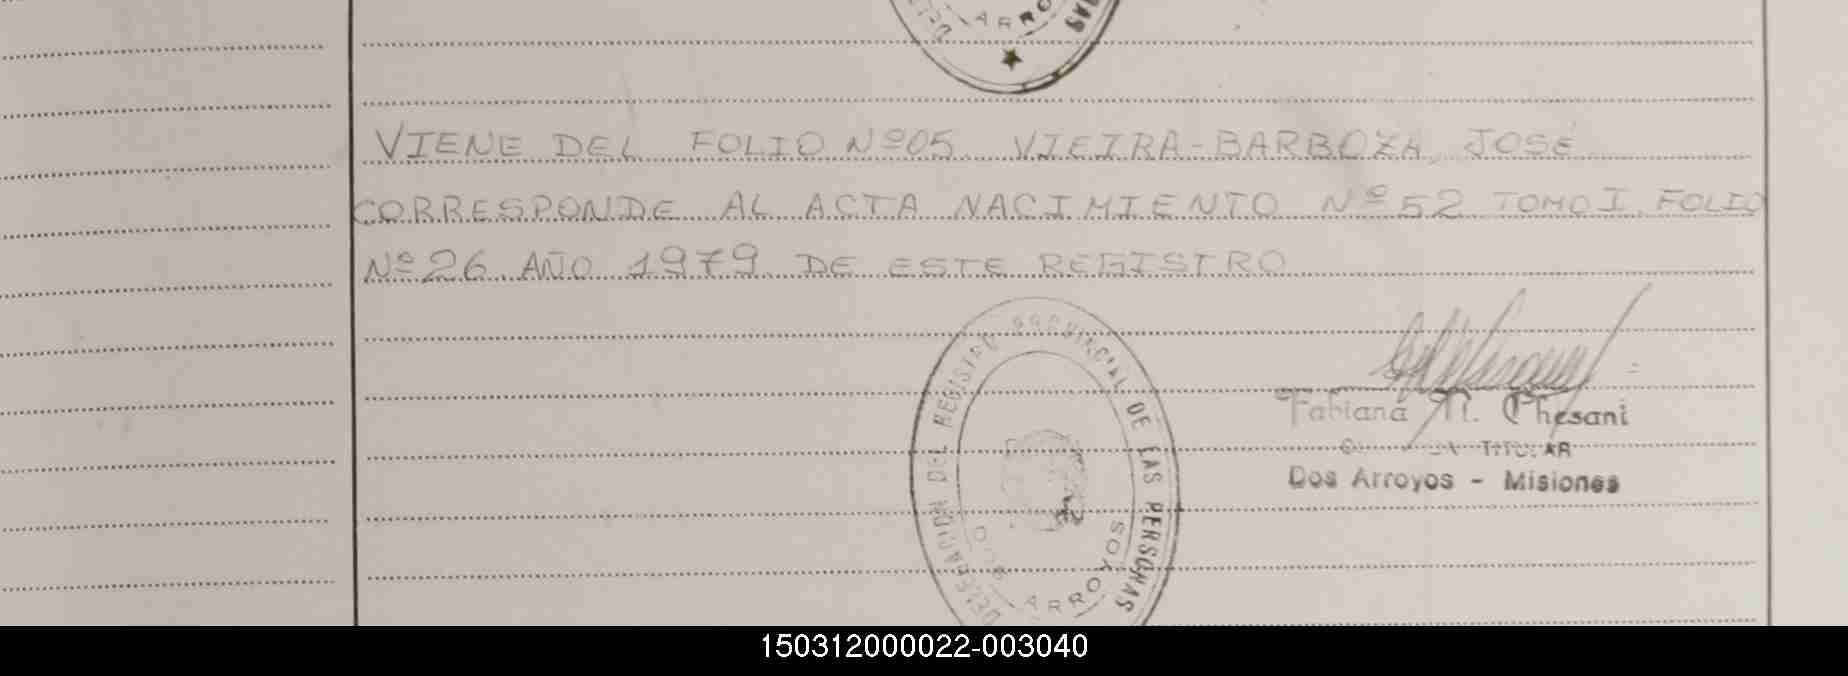 ARRO
VIENE DEL FOLIO Nº05. VIEIRA-BARBOZA, JOSÉ
CORRESPONDE AL ACTA NACIMIENTO Nº 52 TOMO I. FOLIO
Nº 26 AÑO 1979 DE ESTE REGISTRO
DELEGACION DEL REGISTRO PROVINCIAL DE LAS PERSONAS
DOS ARROYOS
Fabiana M. Chesani
TITULAR
Dos Arroyos - Misiones
150312000022-003040